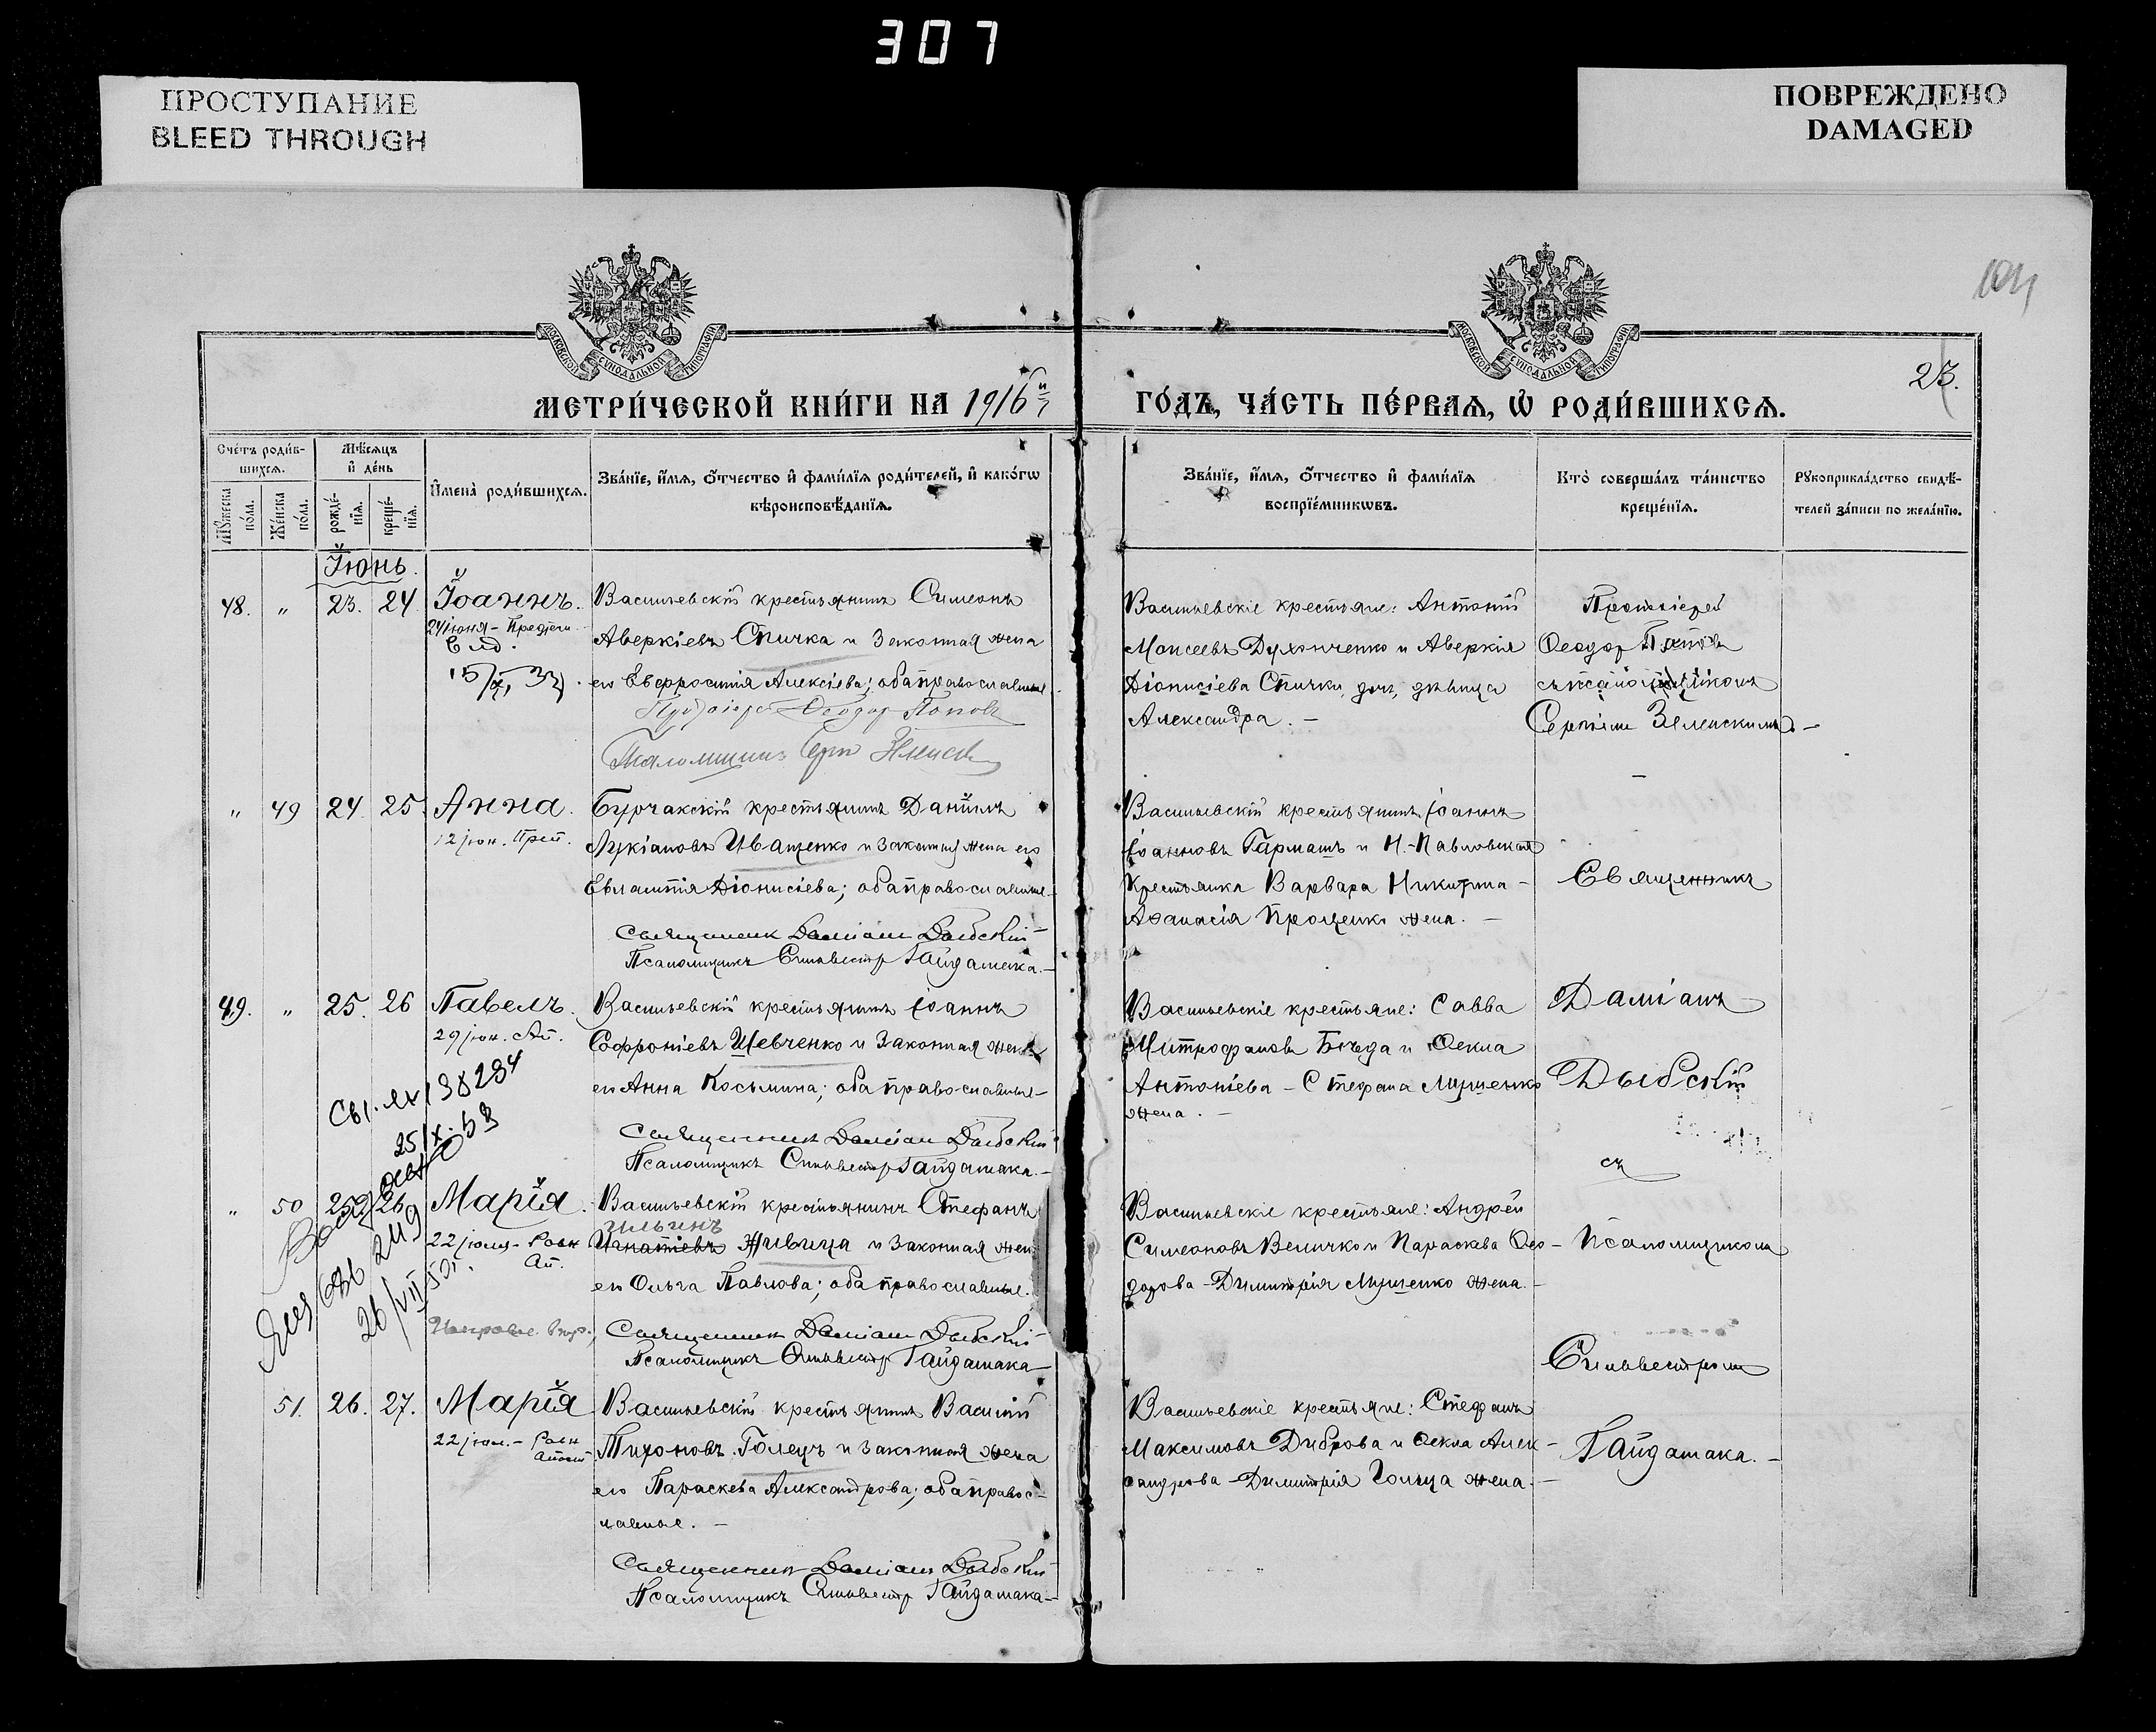 307
ПРОСТУПАНИЕ
BLEED THROUGH
ПОВРЕЖДЕНО
DAMAGED
МОСКОВСКОЙ СѴНОДАЛЬНОЙ ТИПОГРАФІИ
МОСКОВСКОЙ СѴНОДАЛЬНОЙ ТИПОГРАФІИ
23.
МЕТРИ́ЧЕСКОЙ КНИ́ГИ НА 1916й
ГО́ДЪ, ЧА́СТЬ ПЕ́РВАѦ, Ѡ҆ РОДИ́ВШИХСѦ.
Сче́тъ роди́в-
шихсѧ.
Мѣ́сѧцъ
и҆ де́нь
Мꙋ́жеска
по́ла.
Же́нска
по́ла.
рожде́-
нїѧ.
креще́-
нїѧ.
И҆мена̀ роди́вшихсѧ.
Зва́нїе, и҆́мѧ, ѻ҆́тчество и҆ фами́лїѧ роди́телей, и҆ како́гѡ
вѣроисповѣ́данїѧ.
Зва́нїе, и҆́мѧ, ѻ҆́тчество и҆ фами́лїѧ
воспрїе́мникѡвъ.
Кто̀ соверша́лъ та́инство
креще́нїѧ.
Рꙋкоприкла́дство свидѣ́-
телей за́писи по жела́нїю.
Іюнь.
48. " 23. 24 Іоаннъ.
24 іюня - Предтечи
Васильевскій крестьянинъ Симеонъ
Аверкіевъ Спичка и законная жена
его Евфросинія Алексіева; оба православные.
Протоіерей Ѳеодоръ Поповъ
Псаломщикъ
Васильевскіе крестьяне: Антоній
Моисеевъ Духонченко и Аверкія
Діонисіева Спички, дочь, дѣвица
Александра. -
Протоіерей
Ѳеодоръ Поповъ
съ псаломщикомъ
Зеленскимъ -
" 49 24 25. Анна.
12 іюн. Преп.
Бурчакскій крестьянинъ Даніилъ
Лукіановъ Иващенко и законная жена его
Евлампія Діонисіева; оба православные. -
Священникъ Даміанъ Дыбскій
Псаломщикъ Сильвестръ Гайдамака. -
Васильевскій крестьянинъ Іоаннъ
Іоанновъ Гармашъ и Н.-Павловская
крестьянка Варвара Никитина -
Аѳанасія Проценко жена. -
Священникъ
49. " 25. 26 Павелъ.
29 іюн. Ап.
Васильевскій крестьянинъ Іоаннъ
Софроніевъ Шевченко и законная жена
его Анна Косьмина; оба православные -
Священникъ Даміанъ Дыбскій
Псаломщикъ Сильвестръ Гайдамака. -
Васильевскіе крестьяне: Савва
Митрофановъ Бѣда и Ѳекла
Антоніева - Стефана Мищенко
жена. -
Даміанъ
Дыбскій
съ
" 50 25 26 Марія.
22 іюля - Равн
Ап.
Васильевскій крестьянинъ Стефанъ
Ильинъ
Игнатіевъ Живица и законная жена
его Ольга Павлова; оба православные.
Священникъ Даміанъ Дыбскій -
Псаломщикъ Сильвестръ Гайдамака
Васильевскіе крестьяне: Андрей
Симеоновъ Величко и Параскева Ѳео-
дорова - Димитрія Мищенко жена. -
Псаломщикомъ
Сильвестромъ
51. 26. 27. Марія
22 іюл. - Равн
Апост.
Васильевскій крестьянинъ Василій
Тихоновъ Голецъ и законная жена
его Параскева Александрова; оба правос-
лавные. -
Священникъ Даміанъ Дыбскій
Псаломщикъ Сильвестръ Гайдамака -
Васильевскіе крестьяне: Стефанъ
Максимовъ Диброва и Ѳекла Алек-
сандрова - Димитрія Гольца жена. -
Гайдамака. -